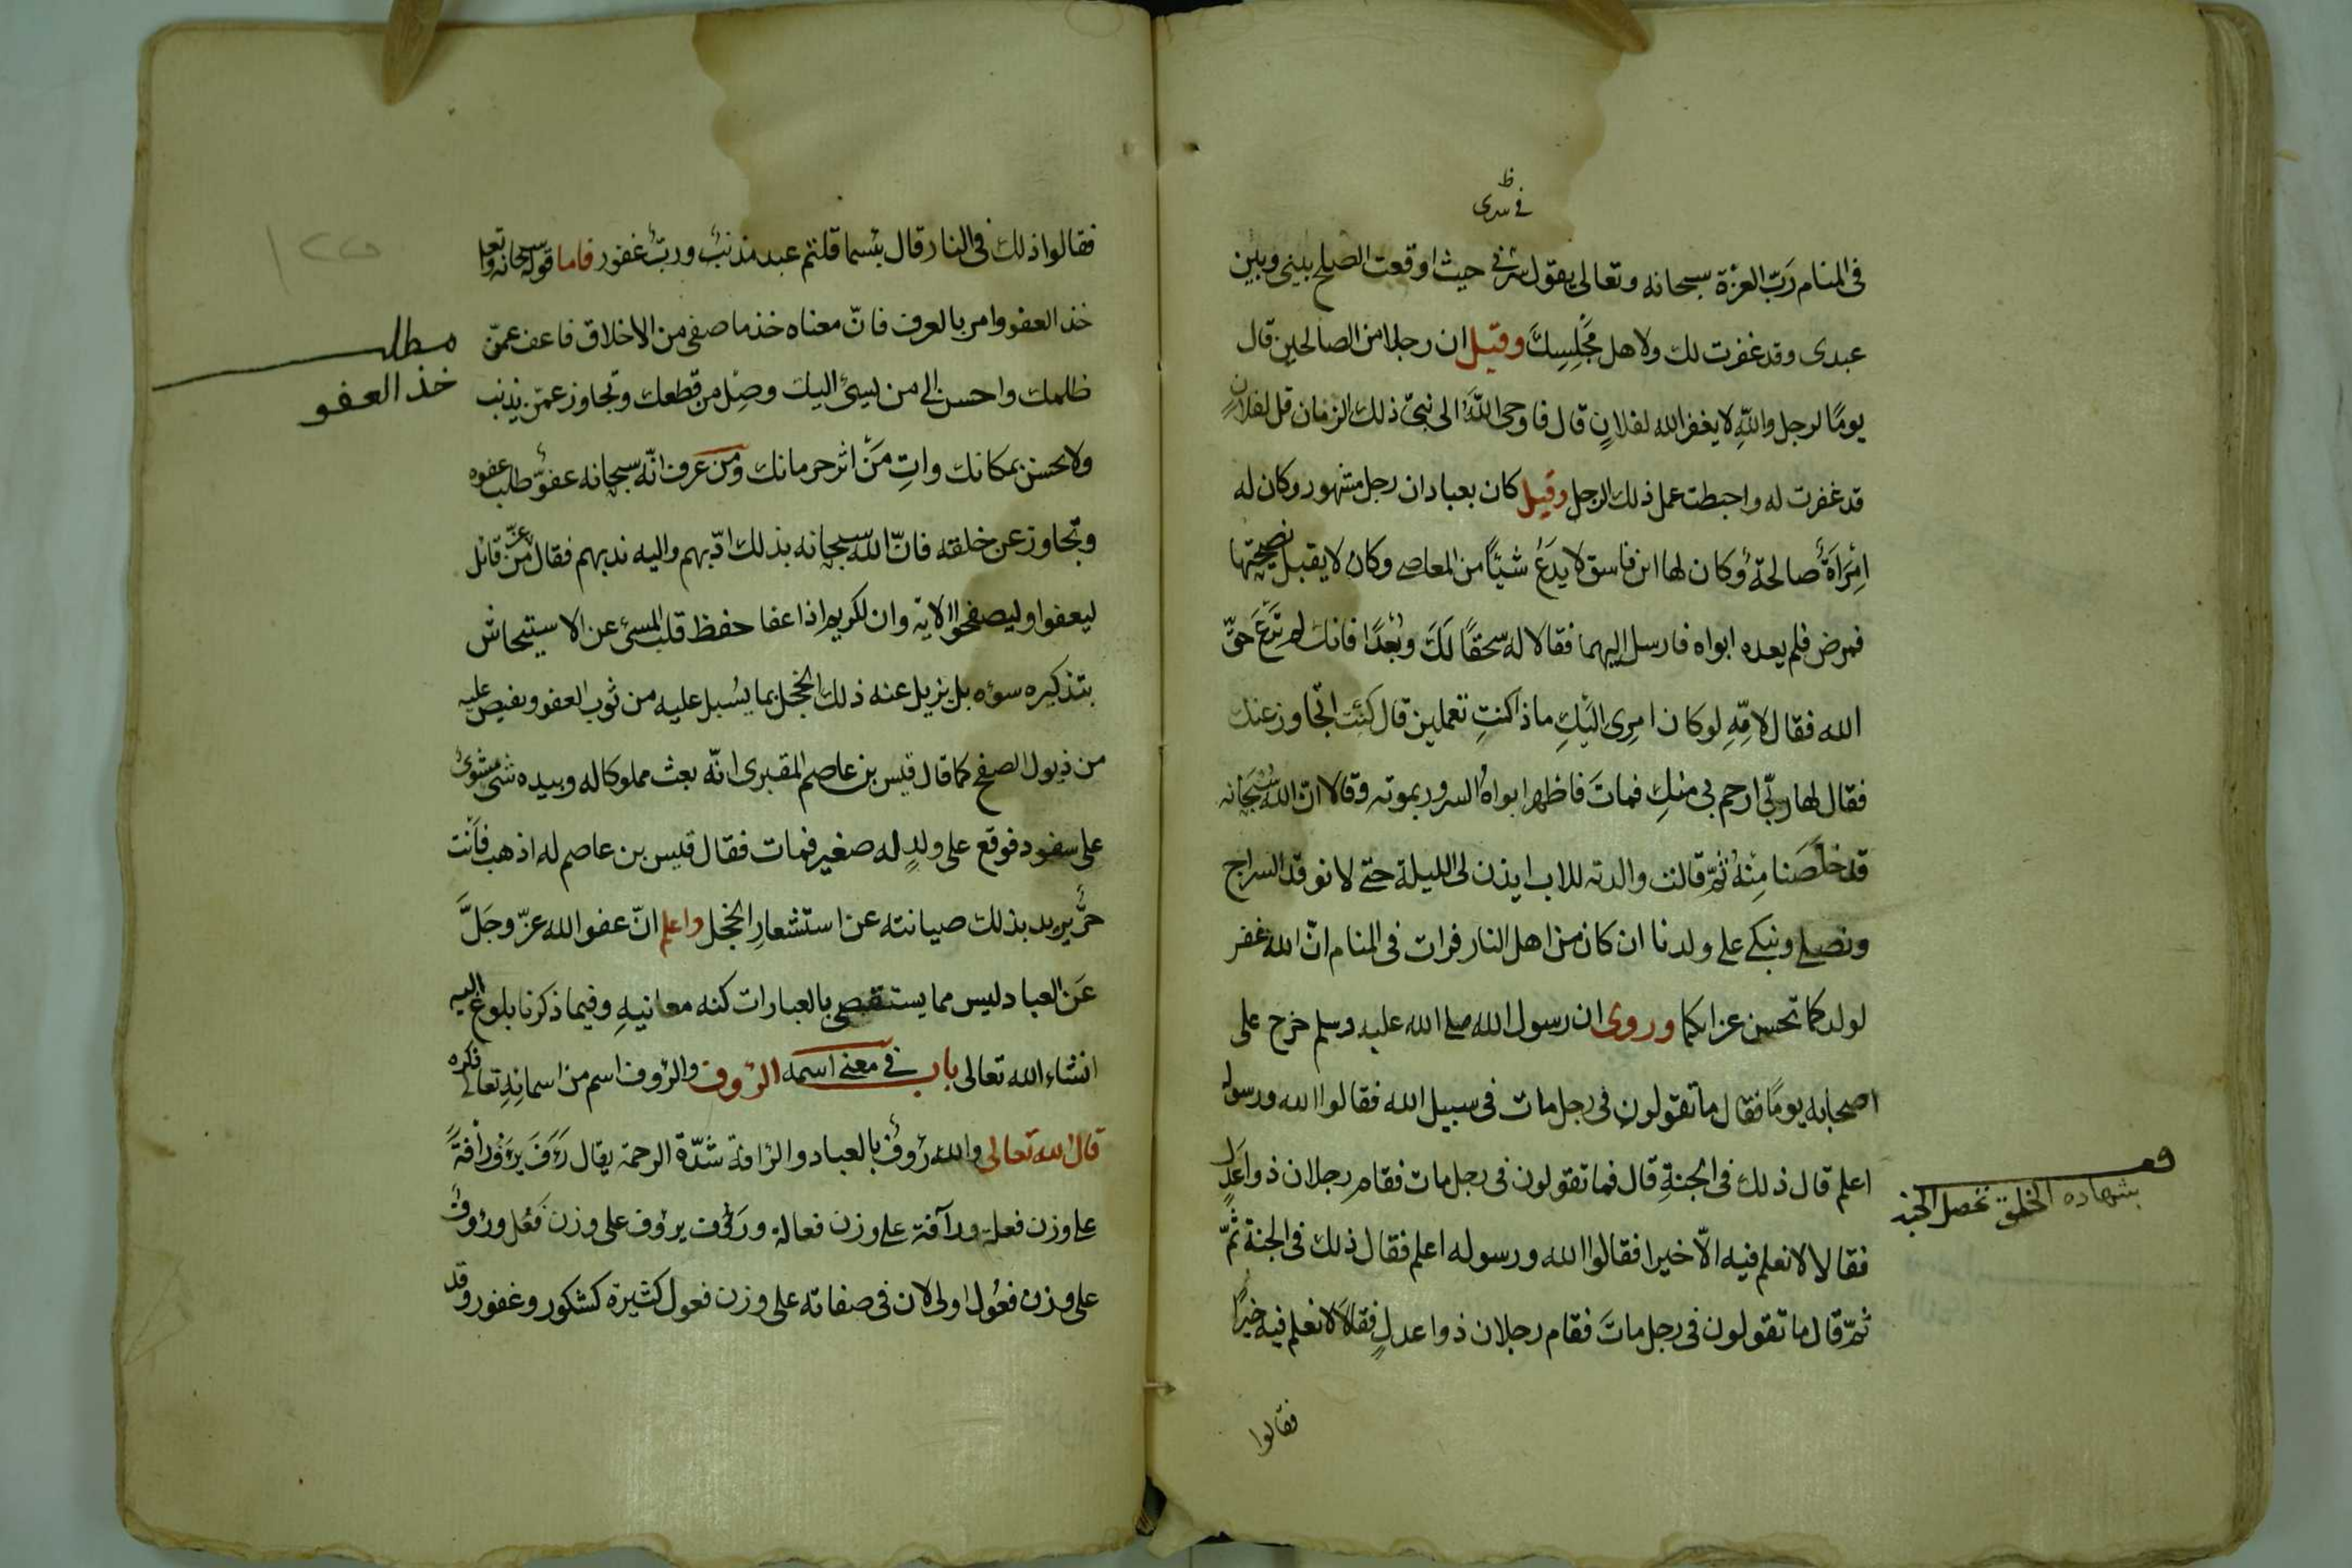 ظ
في سرى
في المنام رَبّ العزة سبحانه وتعالى يقول حيث اوقعت الصلح بيني وبين
عبدى وقد غفرت لك ولاهل مَجْلِسِكَ وقيل ان رجلا من الصالحين قال
يومًا لرجل واللهِ لا يغفر الله لفلانٍ قال فاوحى اللهُ الى نبىّ ذلك الزمان قل لفلانٍ
قد غفرت له واحبطت عمل ذلك الرجل وقيل كان بعبادان رجل مشهور وكان له
اِمْرَاَةٌ صالحةٌ وكان لها ابن فاسق لا يَدَعُ شيئًا من المعاصى وكان لا يقبل نصيحتها
فمرض فلم يعده ابواه فارسل اليهما فقالا له سحقًا لَكَ وبُعْدًا فانك لم تَرْعَ حقّ
الله فقال لامّهِ لو كان امرى اليَكِ ماذا كنتِ تعملين قال كنت اتجاوز عنك
فقال لها ربّى ارحم بى منكِ فماتَ فاظهر ابواهُ السرور بموته وقالا انّ الله سُبْحَانه
قد خلّصَنا مِنْهُ ثمّ قالت والدته للاب ايذن لى الليلة حتى لا نوقد السراج
ونصلى ونبكى على ولدنا ان كان من اهل النار فرات في المنام انّ الله غفر
لولدكما تحسن عزاكما وروى ان رسول الله صلى الله عليه وسلم خرج على
اصحابه يومًا فقال ما تقولون في رجل مات في سبيل الله فقالوا الله ورسوله
اعلم قال ذلك في الجنةِ قال فما تقولون في رجل مات فقام رجلان ذوا عَدْلٍ
فقالا لا نعلم فيه الّا خيرا فقالوا الله ورسوله اعلم فقال ذلك في الجنة ثمّ
ثمّ قال ما تقولون في رجل ماتَ فقام رجلان ذوا عدلٍ فقالا لا نعلم فيه خيرًا
بشهاده الخلق تحصل الجنه
فقالوا
فقالوا ذلك في النار قال بئسما قلتم عبد مذنبٌ وربٌّ غفور فاما قوله سبحانه وتعا
خذ العفو وامر بالعرف فانّ معناه خذ ما صفى من الاخلاق فاعف عمّن
ظلمك واحسن الى من يسئ اليك وصِل من قطعك وتجاوز عمّن يذنب
ولا يحسن بمكانك واتِ مَنْ اثر حرمانك ومن عرف انّه سبحانه عفوٌّ طلب عفوه
وتجاوز عن خلقه فانّ الله سبحانه بذلك ادّبهم واليه ندبهم فقال عزّ من قائل
ليعفوا وليصفحوا الاية وان الكريم اذا عفا حفظ قلب المسئ عن الاستيحاش
بتذكيره سوءه بل يزيل عنه ذلك الخجل بما يسْبل عليه من ثوب العفو ويفيض عليه
من ذيول الصفح كما قال قيس بن عاصم المقبرى انّه بعث مملوكا له وبيده شئ مشوى
على سفود فوقع على ولدٍ له صغير فمات فقال قيس بن عاصم له اذهب فاَنْت
حرٌّ يريد بذلك صيانته عن استشعارِ الخجل واعلم انّ عفو الله عزّ وجَلَّ
عَن العباد ليس مما يستقصى بالعبارات كنه معانيهِ وفيما ذكرنا بلوغ اليه
انشاء الله تعالى باب في معنى اسمه الرؤف والرؤف اسم من اسمائِهِ تعالى ذكره
قال الله تعالى والله رؤوفٌ بالعباد والرافة شدّة الرحمة يقال رَءَفَ يرءَفُ رأفةً
على وزن فعلة ورآفة على وزن فعالة ورَؤُف يرؤف على وزن فَعُل ورؤوفٌ
على وزن فعُول اولى لان في صفاته على وزن فعول كثيرة كشكور وغفور وقد
مطلب
خذ العفو